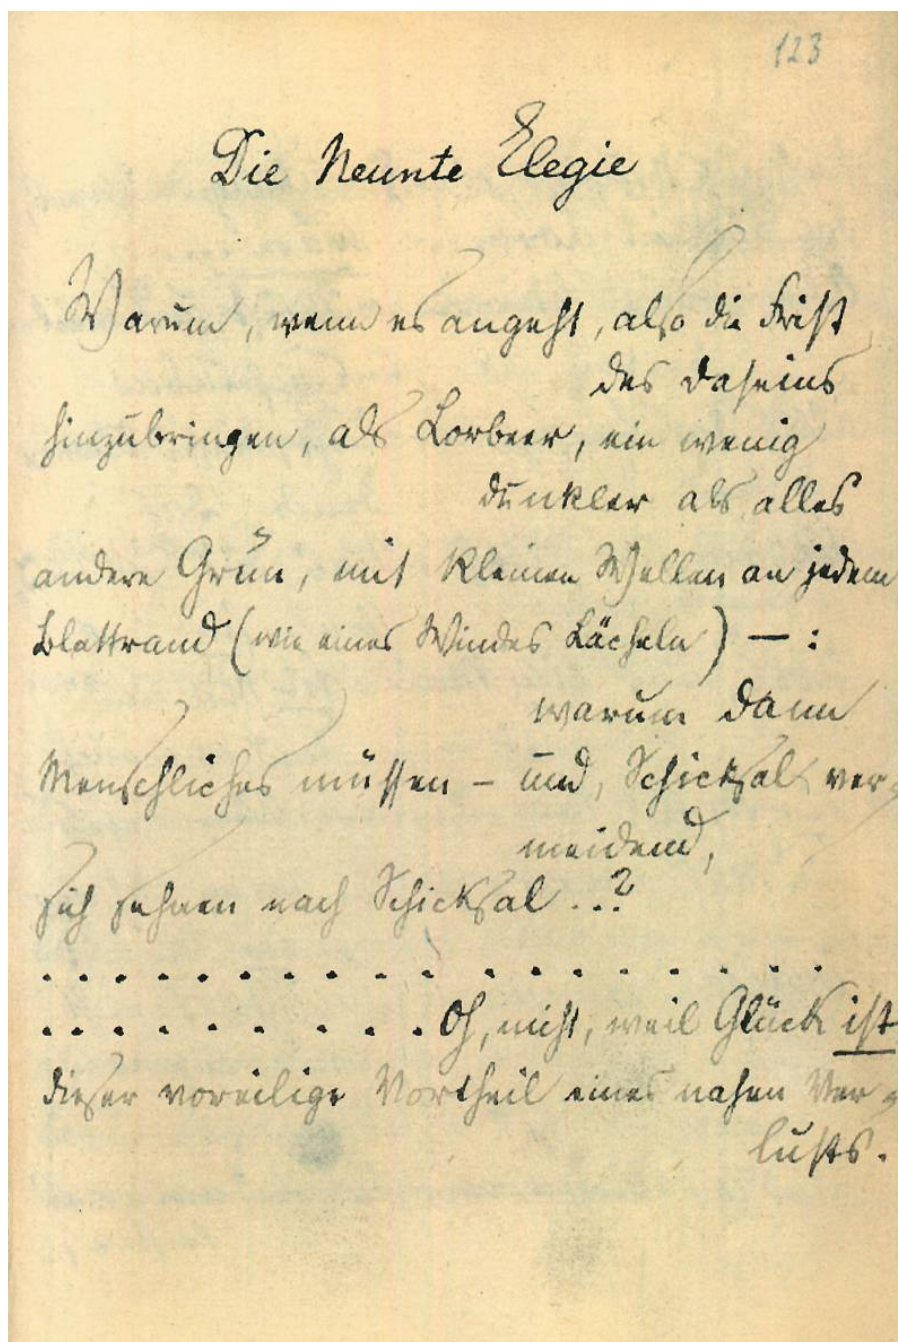 123
Die Neunte Elegie
Warum, wenn es angeht, also die Frist
des Daseins
hinzubringen, als Lorbeer, ein wenig
dunkler als alles
andere Grün, mit kleinen Wellen an jedem
Blattrand (wie eines Windes Lächeln) — :
warum dann
Menschliches müssen – und, Schicksal ver-
meidend,
sich sehnen nach Schicksal ...?
. . . . . . . . . . . . . . . . . . .
. . . . . . . . . . Oh, nicht, weil Glück ist
dieser voreilige Vortheil eines nahen Ver-
lusts.